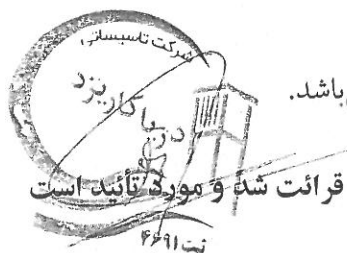 شرکت تاسیساتی
باشد.
دریا کاریزد
قرائت شد و مورد تأئید است
ثبت ۴۶۹۱